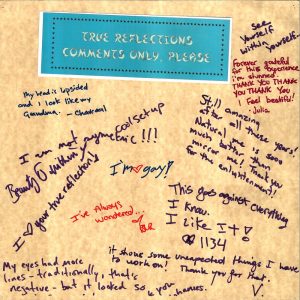 TRUE REFLECTIONS
COMMENTS ONLY, PLEASE
See
Yourself
within
Yourself.
Forever grateful
for this experience
I'm stunned.
THANK YOU
THANK YOU
YOU THANK YOU
I Feel beatiful!
- Julia
My head is lopsided
and I look like my
Grandma,
Still amazing
after all these years!
Natural me is soon
much better than
mirror me! Thank you
for the enlightenment!
Cool setup
Eric!!!
I am not anymore
Beauty within
I ♥ your true reflection's
I'm ♥ gay!
I've Always
Wondered...
This goes against everything
I know.
I LIKE IT!
1134
My eyes had more
lines - traditionally, that's
negative - but it looked so
It showed some unexpected things I have
to work on! Thank you for that.
V.